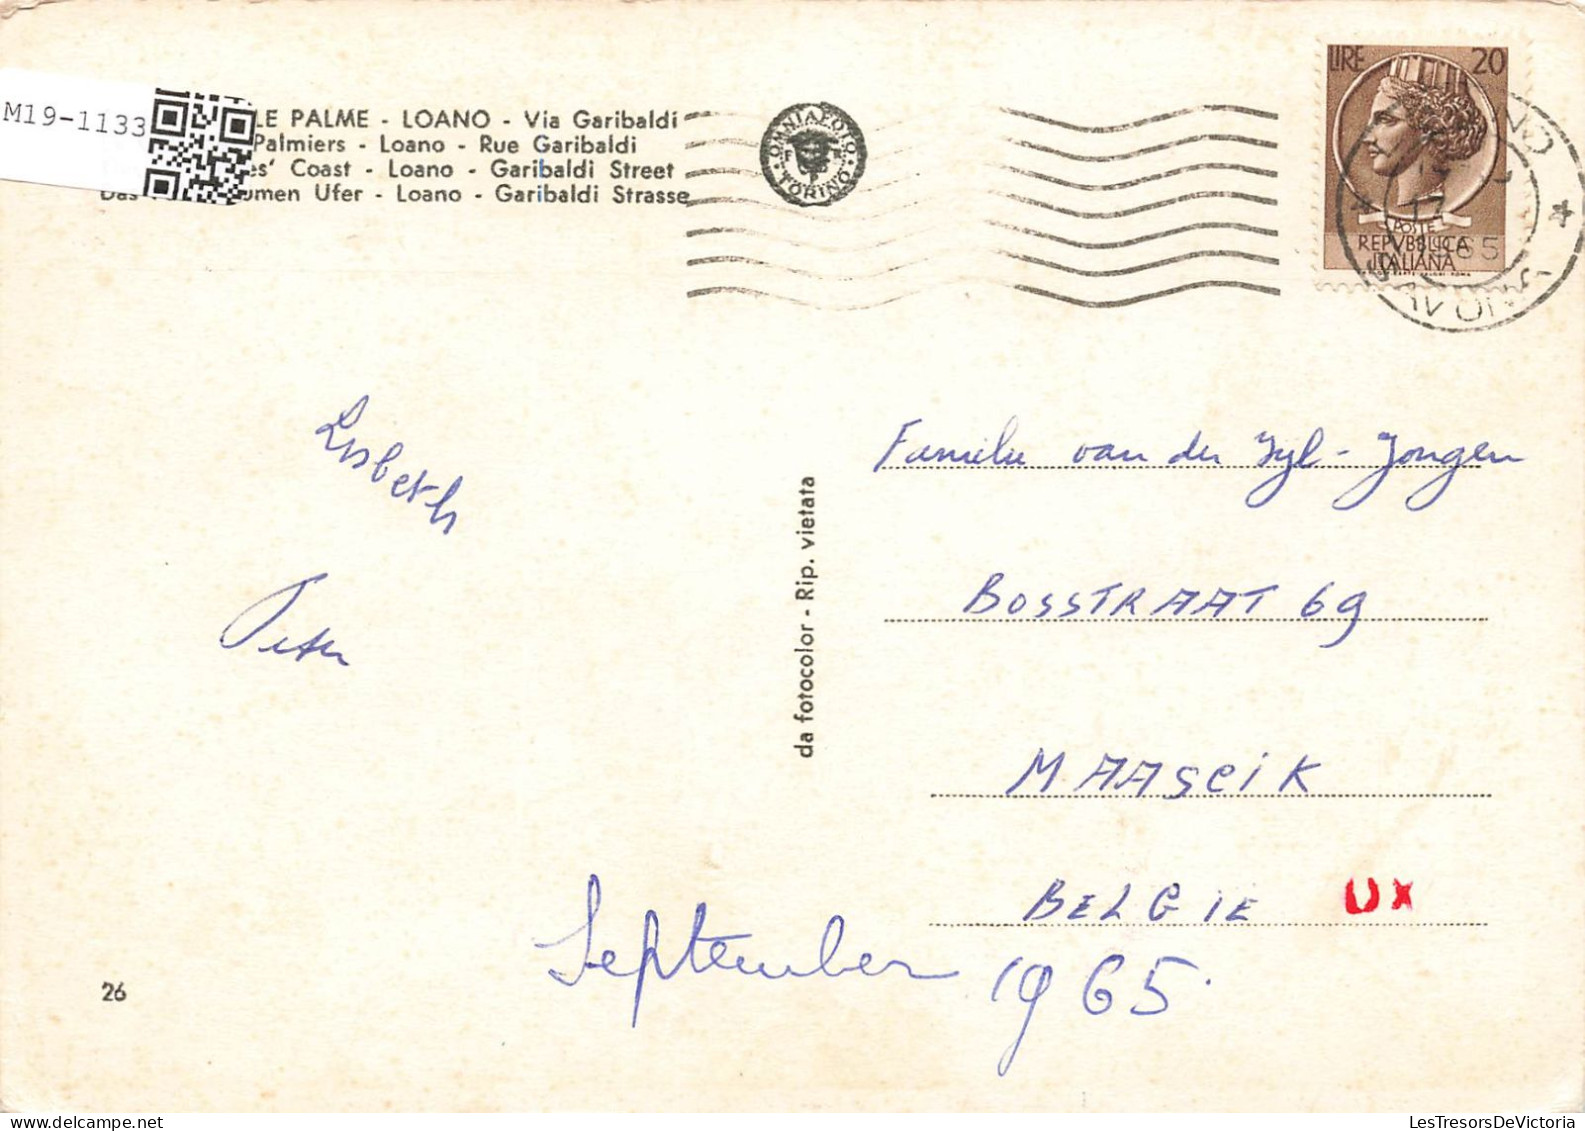 M19-1133
LE PALME - LOANO - Via Garibaldi
Palmiers - Loano - Rue Garibaldi
es' Coast - Loano - Garibaldi Street
umen Ufer - Loano - Garibaldi Strasse
OMNIAFOTO
TORINO
LIRE 20
POSTE
REPVBBLICA
ITALIANA
17
65
SAVONA
Lisbeth
Peter
da fotocolor - Rip. vietata
Familie van der Zyl - Jongen
BOSSTRAAT 69
MAASEIK
BELGIE UX
September 1965.
26
LesTresorsDeVictoria